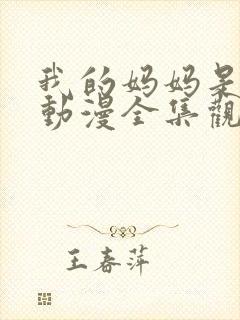 我的妈妈是
動漫全集觀
王春萍